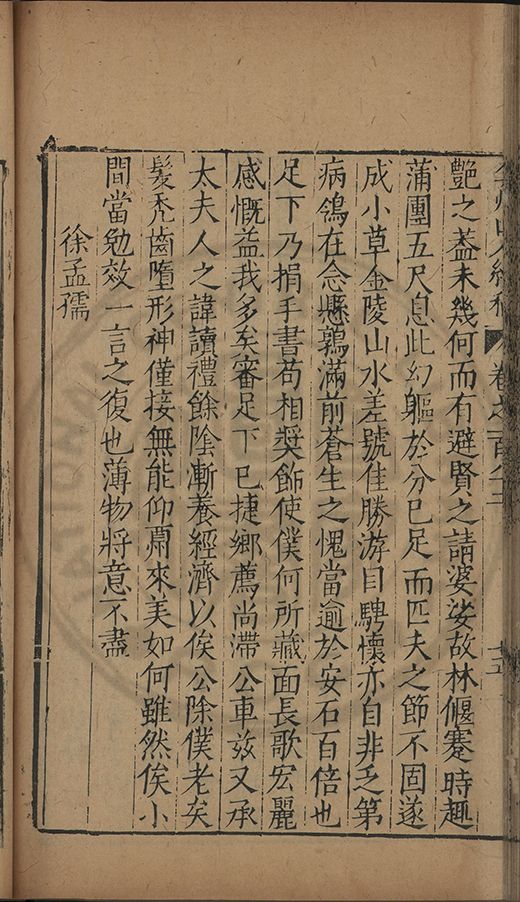 弇州山人續稿 卷之一百八十三 十五
艷之蓋未幾何而有避賢之請婆娑故林偃蹇時趣
蒲團五尺息此幻軀於分已足而匹夫之節不固遂
成小草金陵山水差號佳勝游目騁懷亦自非乏第
病鴿在念懸鶉滿前蒼生之愧當逾於安石百倍也
足下乃捐手書苟相奬飾使僕何所藏面長歌宏麗
感慨益我多矣審足下已捷鄉薦尚滯公車玆又承
太夫人之諱讀禮餘陰漸養經濟以俟公除僕老矣
髪禿齒墮形神僅接無能仰嗣來美如何雖然俟小
間當勉效一言之復也薄物將意不盡
徐孟孺